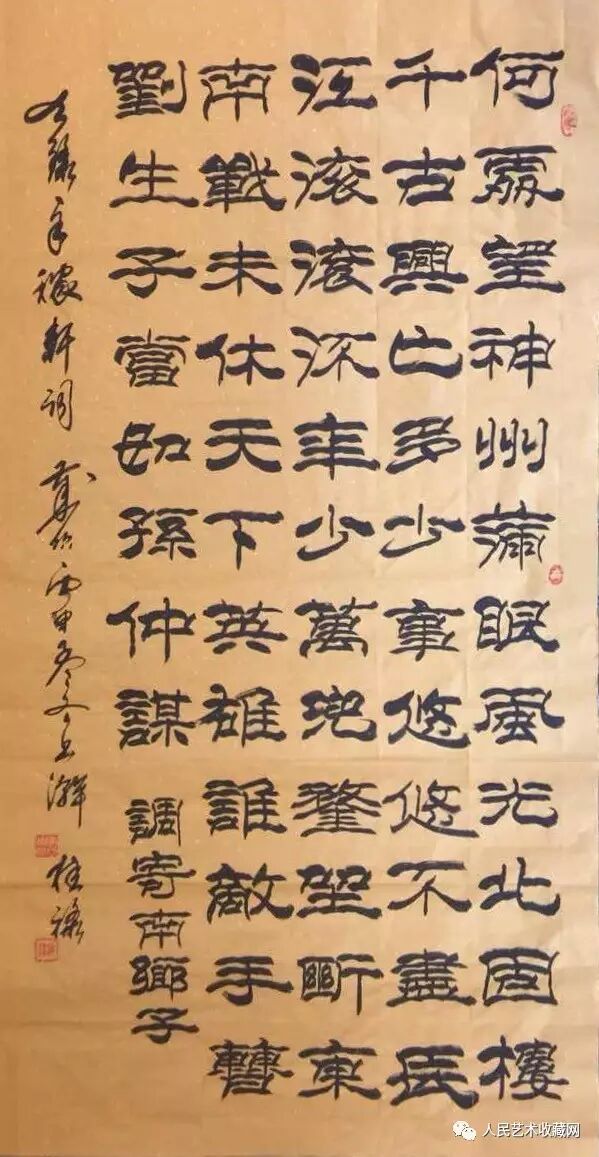 何處望神州滿眼風光北固樓
千古興亡多少事悠悠不盡長
江滾滾流年少萬兜鍪坐斷東
南戰未休天下英雄誰敵手曹
劉生子當如孫仲謀
調寄南鄉子
右錄辛稼軒詞 歲 丙申
人民艺术收藏网